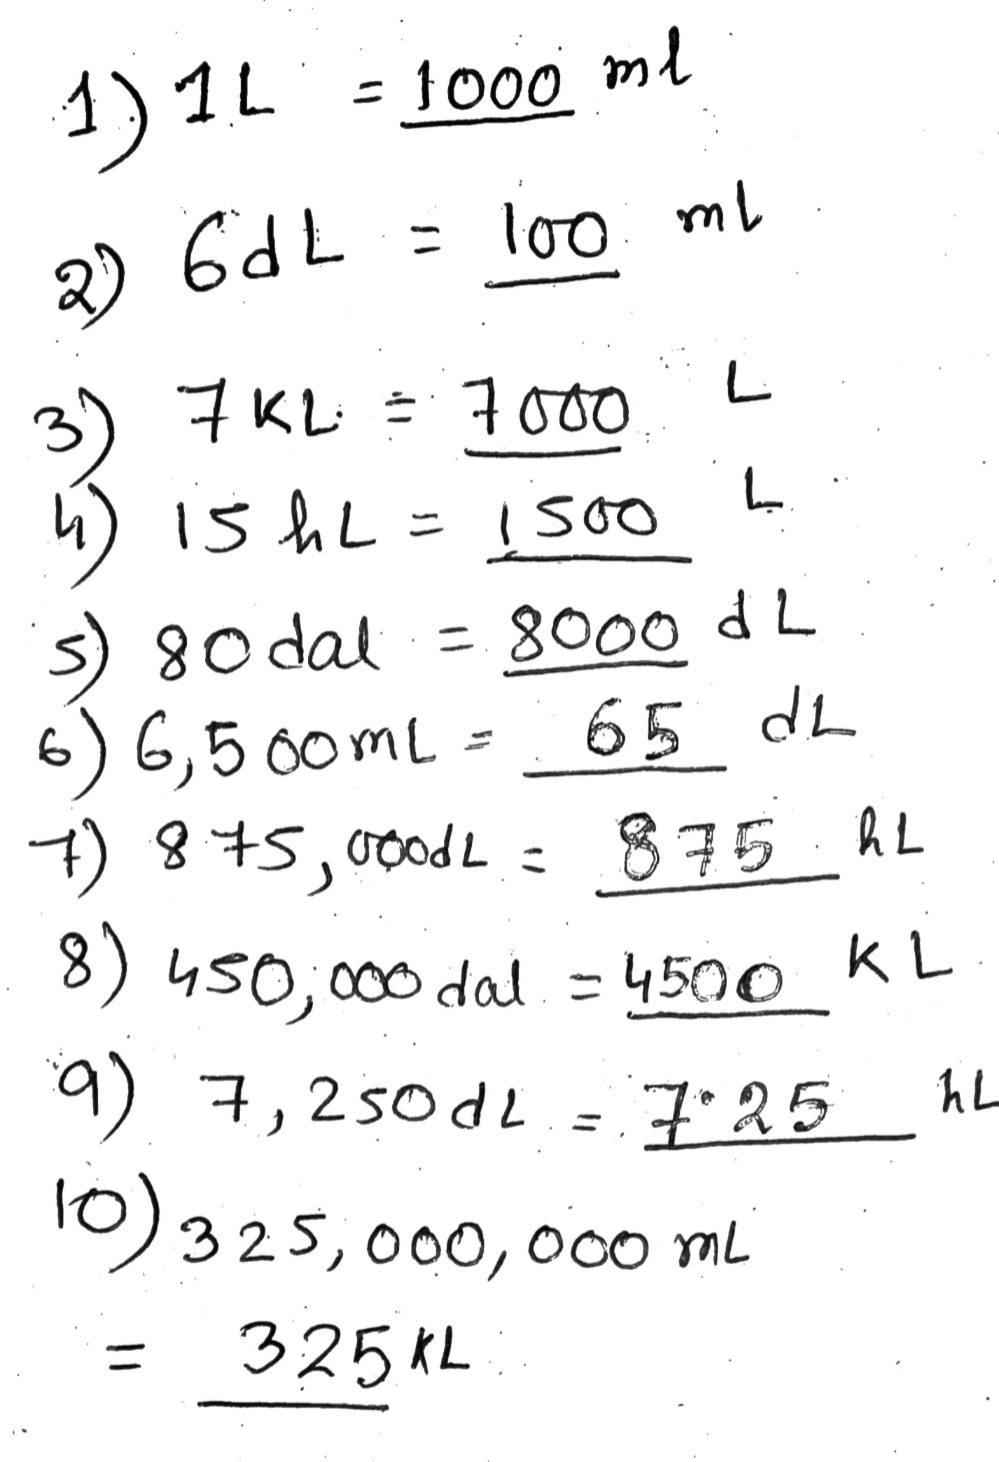 1) 1L = 1000 ml
2) 6dL = 100 ml
3) 7KL = 7000 L
4) 15 hL = 1500 L
5) 80 dal = 8000 dL
6) 6,500mL = 65 dL
7) 875,000dL = 875 hL
8) 450,000 dal = 4500 KL
9) 7,250dL = 7.25 hL
10) 325,000,000 mL
= 325KL